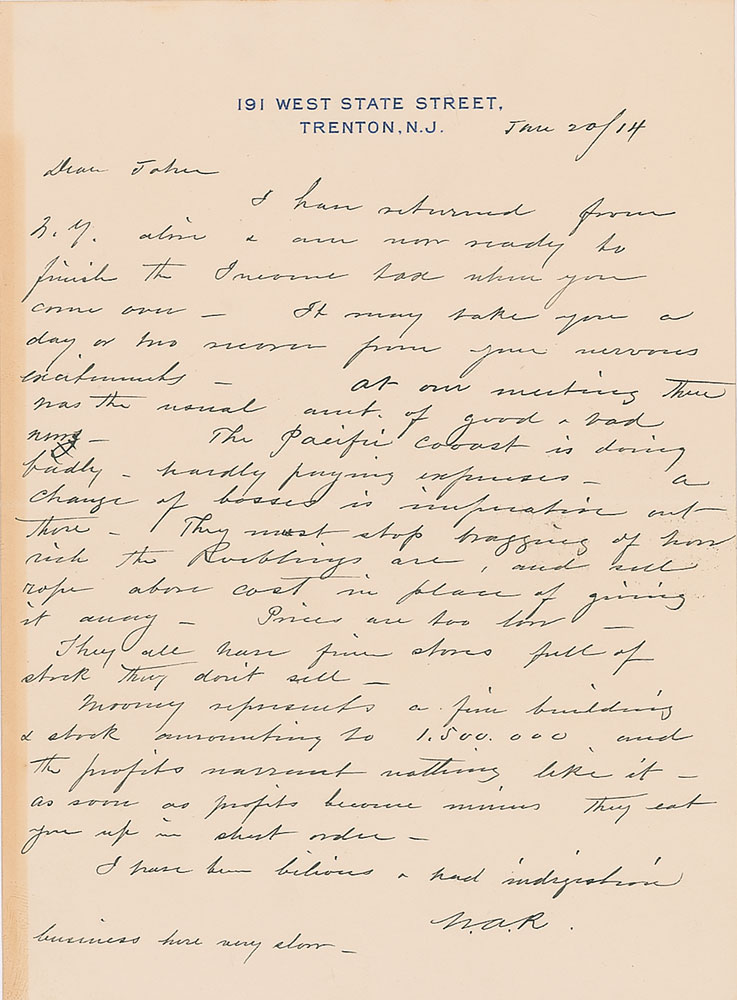 191 WEST STATE STREET,
TRENTON, N.J.
Jan 20/14
Dear John
I have returned from
N.Y. alive & am now ready to
finish the Income tax when you
come over —   It may take you a
day or two recover from your nervous
excitements —   At our meeting there
was the usual amt. of good & bad
news —   The Pacific Coast is doing
badly — hardly paying expenses — a
change of bosses is imperative out
there — They must stop bragging of how
rich the Roeblings are, and sell
rope above cost in place of giving
it away — Prices are too low —
They all have fine stores full of
stock they don't sell —
Mooney represents a fine building
& stock amounting to 1.500.000 and
the profits warrant nothing like it —
as soon as profits become minus they eat
you up in short order —
I have been bilious & had indigestion
W.A.R.
business here very slow —